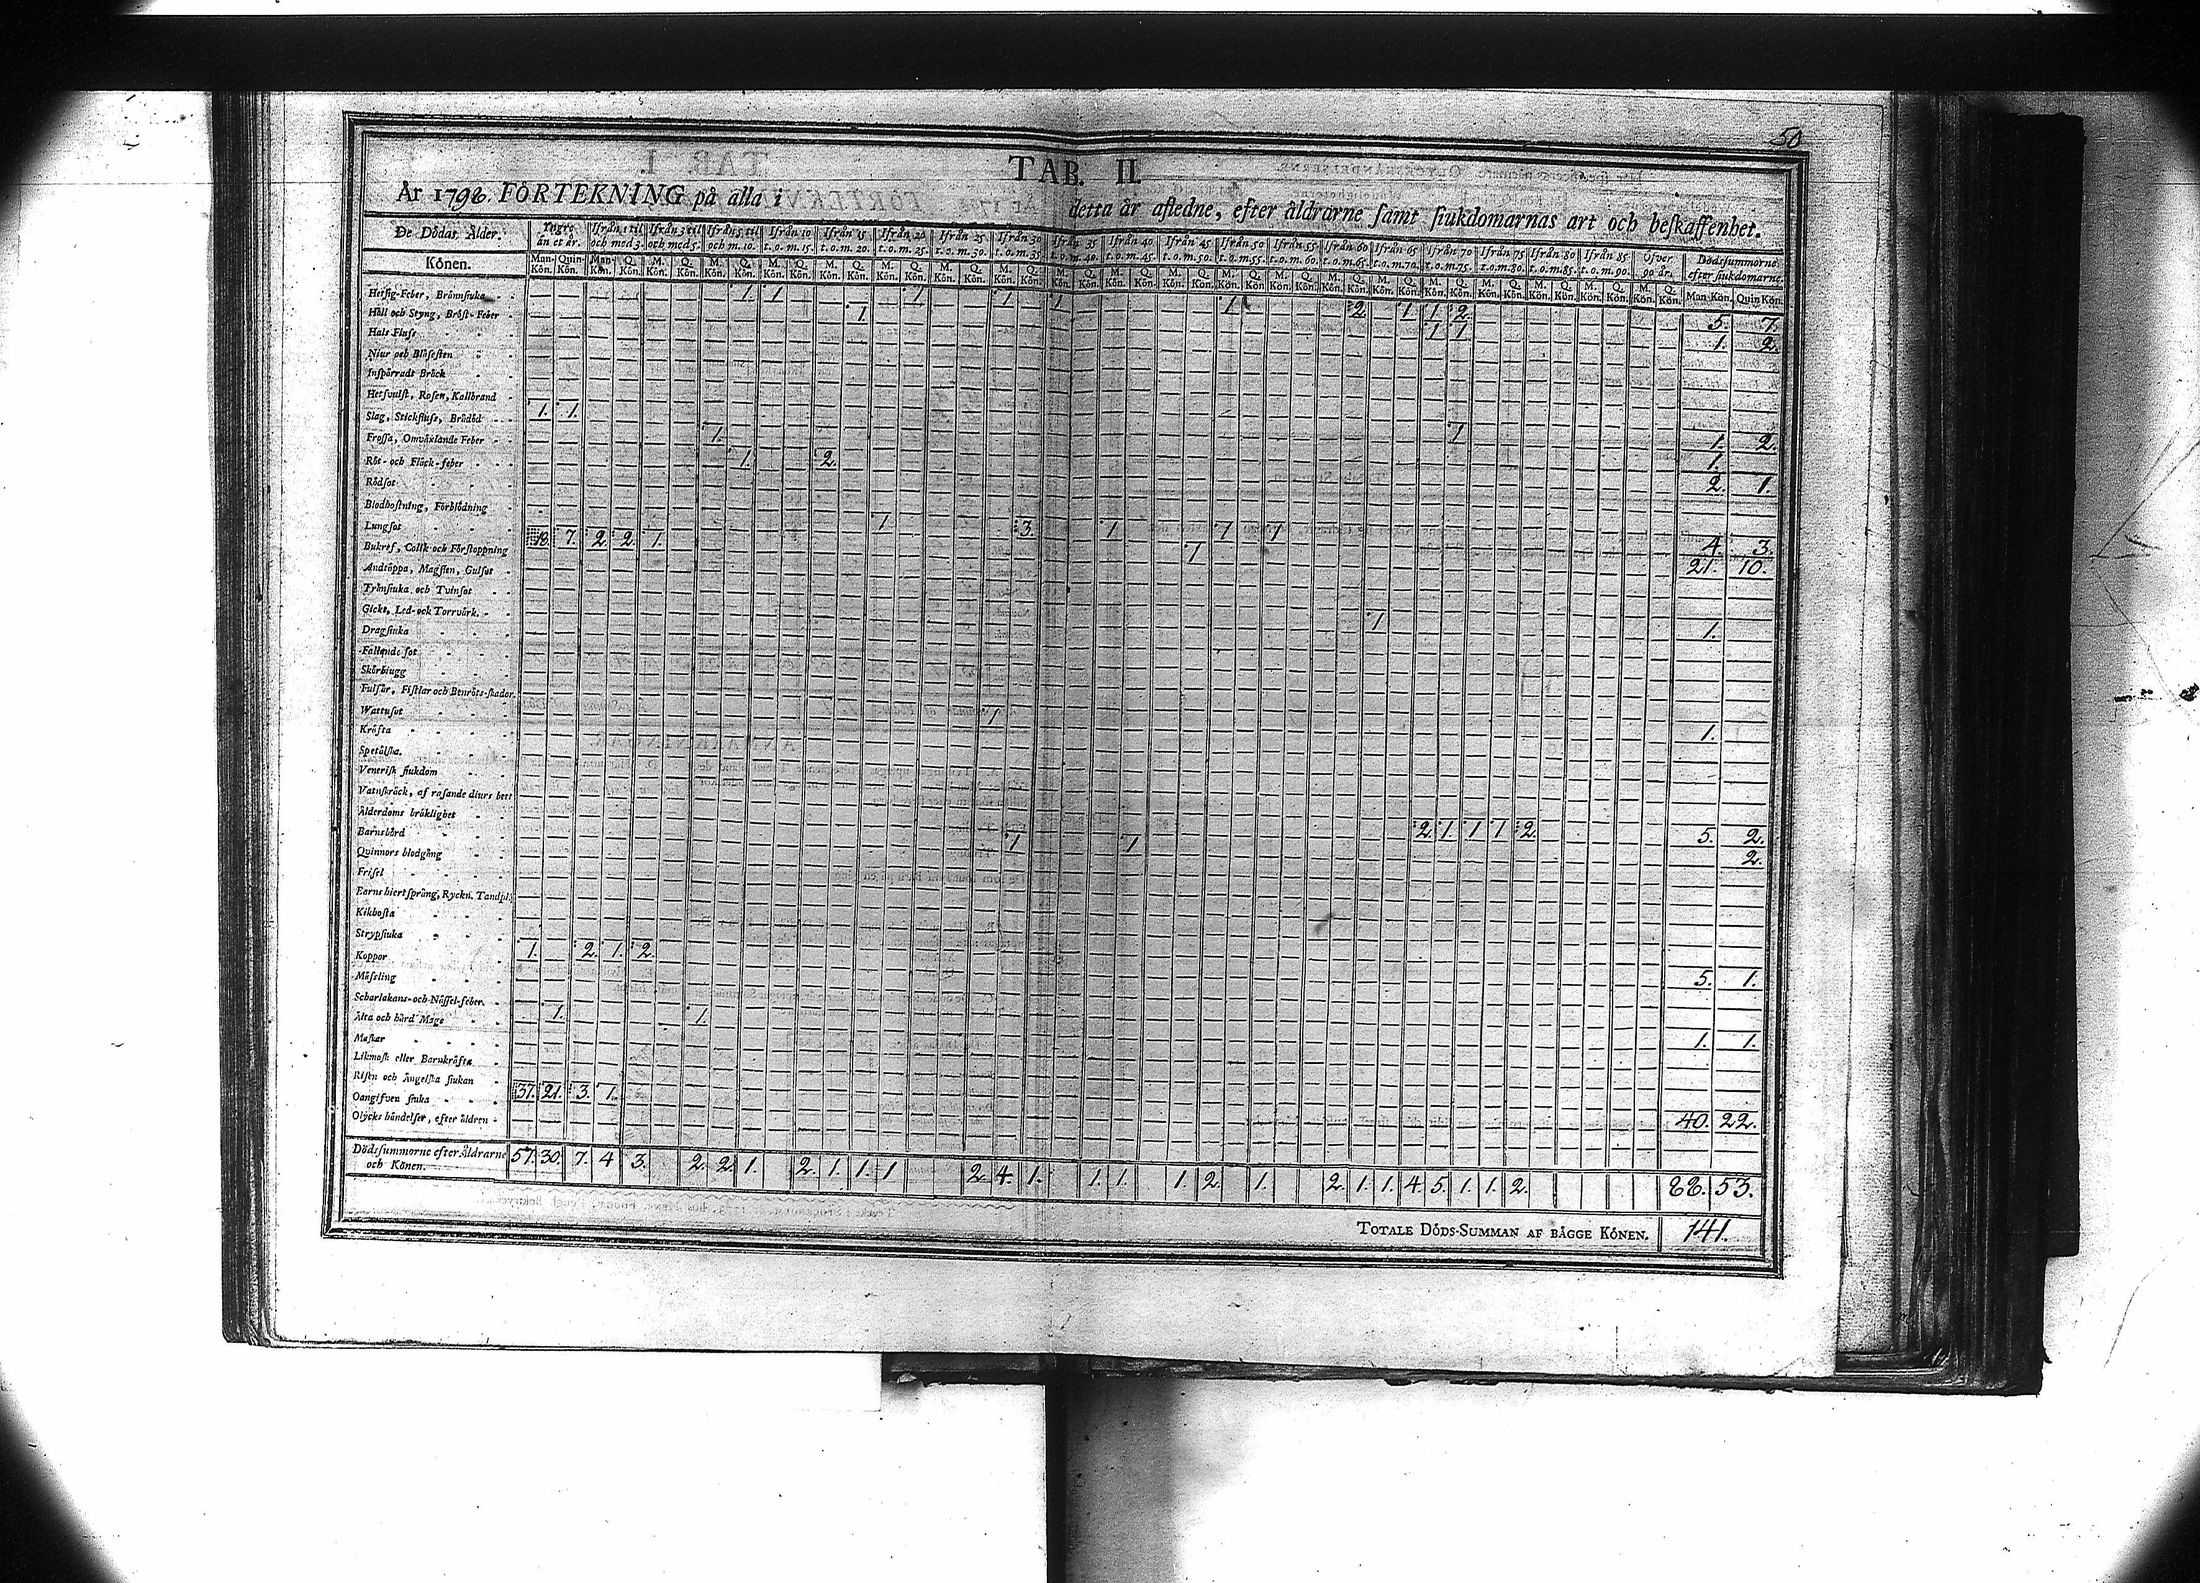 50
TAB. II.
År 1798. FÖRTEKNING på alla i detta år afledne, efter åldrarne samt siukdomarnas art och beskaffenhet.
De Dödas Ålder. Yngre än et år. Ifrån 1 til och med 3. Ifrån 3 til och med 5. Ifrån 5 til och m. 10. Ifrån 10 t. o. m. 15. Ifrån 15 t. o. m. 20. Ifrån 20 t. o. m. 25. Ifrån 25 t. o. m. 30. Ifrån 30 t. o. m. 35. Ifrån 35 t. o. m. 40. Ifrån 40 t. o. m. 45. Ifrån 45 t. o. m. 50. Ifrån 50 t. o. m. 55. Ifrån 55 t. o. m. 60. Ifrån 60 t. o. m. 65. Ifrån 65 t. o. m. 70. Ifrån 70 t. o. m. 75. Ifrån 75 t. o. m. 80. Ifrån 80 t. o. m. 85. Ifrån 85 t. o. m. 90. Öfver 90 år. Dödssummorne efter siukdomarne.
Könen. Man-Kön. Quin-Kön. Man-Kön. Q. Kön. M. Kön. Q. Kön. M. Kön. Q. Kön. M. Kön. Q. Kön. M. Kön. Q. Kön. M. Kön. Q. Kön. M. Kön. Q. Kön. M. Kön. Q. Kön. M. Kön. Q. Kön. M. Kön. Q. Kön. M. Kön. Q. Kön. M. Kön. Q. Kön. M. Kön. Q. Kön. M. Kön. Q. Kön. M. Kön. Q. Kön. M. Kön. Q. Kön. M. Kön. Q. Kön. M. Kön. Q. Kön. M. Kön. Q. Kön. M. Kön. Q. Kön. Man-Kön. Quin Kön.
Hetsig-Feber, Brännsiuka 1 1 1 1 1 1 2 1 1 2 5. 7.
Håll och Styng, Bröst-Feber 1 1 1 1. 2.
Hals Fluss
Niur och Blåsesten
Inspärradt Bråck
Hetsvulst, Rosen, Kallbrand
Slag, Stickfluss, Brådöd 1. 1. 1 1. 2.
Frossa, Omväxlande Feber 1. 1.
Röt- och Fläck-feber 1. 2. 2. 1.
Rödsot
Blodhostning, Förblödning
Lungsot 1 3. 1 1 1 4. 3.
Bukref, Colik och Förstoppning 18. 7. 2. 2. 1. 1 21. 10.
Andtäppa, Magsien, Gulsot
Trånsiuka och Tvinsot
Gickt, Led- och Torrvärk. 1 1.
Dragsiuka
Fallande sot
Skörbiugg
Fulsår, Fistlar och Benröts-skador.
Wattusot 1 1.
Kräfta
Spetälska.
Venerisk siukdom
Vatuskräck, af rasande diurs bett
Ålderdoms bräklighet 2. 1 1 1 2. 5. 2.
Barnsbörd 1 1 2.
Quinnors blodgång
Frisel
Barns hiertsprång, Ryckn. Tandpl.
Kikhosta
Strypsiuka
Koppor 1. 2. 1. 2. 5. 1.
Mässling
Scharlakans- och Nässel-feber.
Älta och hård Mage 1. 1. 1. 1.
Maskar
Likmask eller Barnkräfta
Risen och Ängelska siukan
Oangifven siuka 37. 21. 3. 1. 40. 22.
Olycks händelser, efter äldren
Dödssummorne efter Åldrarne och Könen. 57. 30. 7. 4 3. 2. 2. 1. 2. 1. 1. 1 2. 4. 1. 1. 1. 1 2. 1. 2. 1. 1. 4. 5. 1. 1. 2. 88. 53.
TOTALE DÖDS-SUMMAN AF BÄGGE KÖNEN. 141.